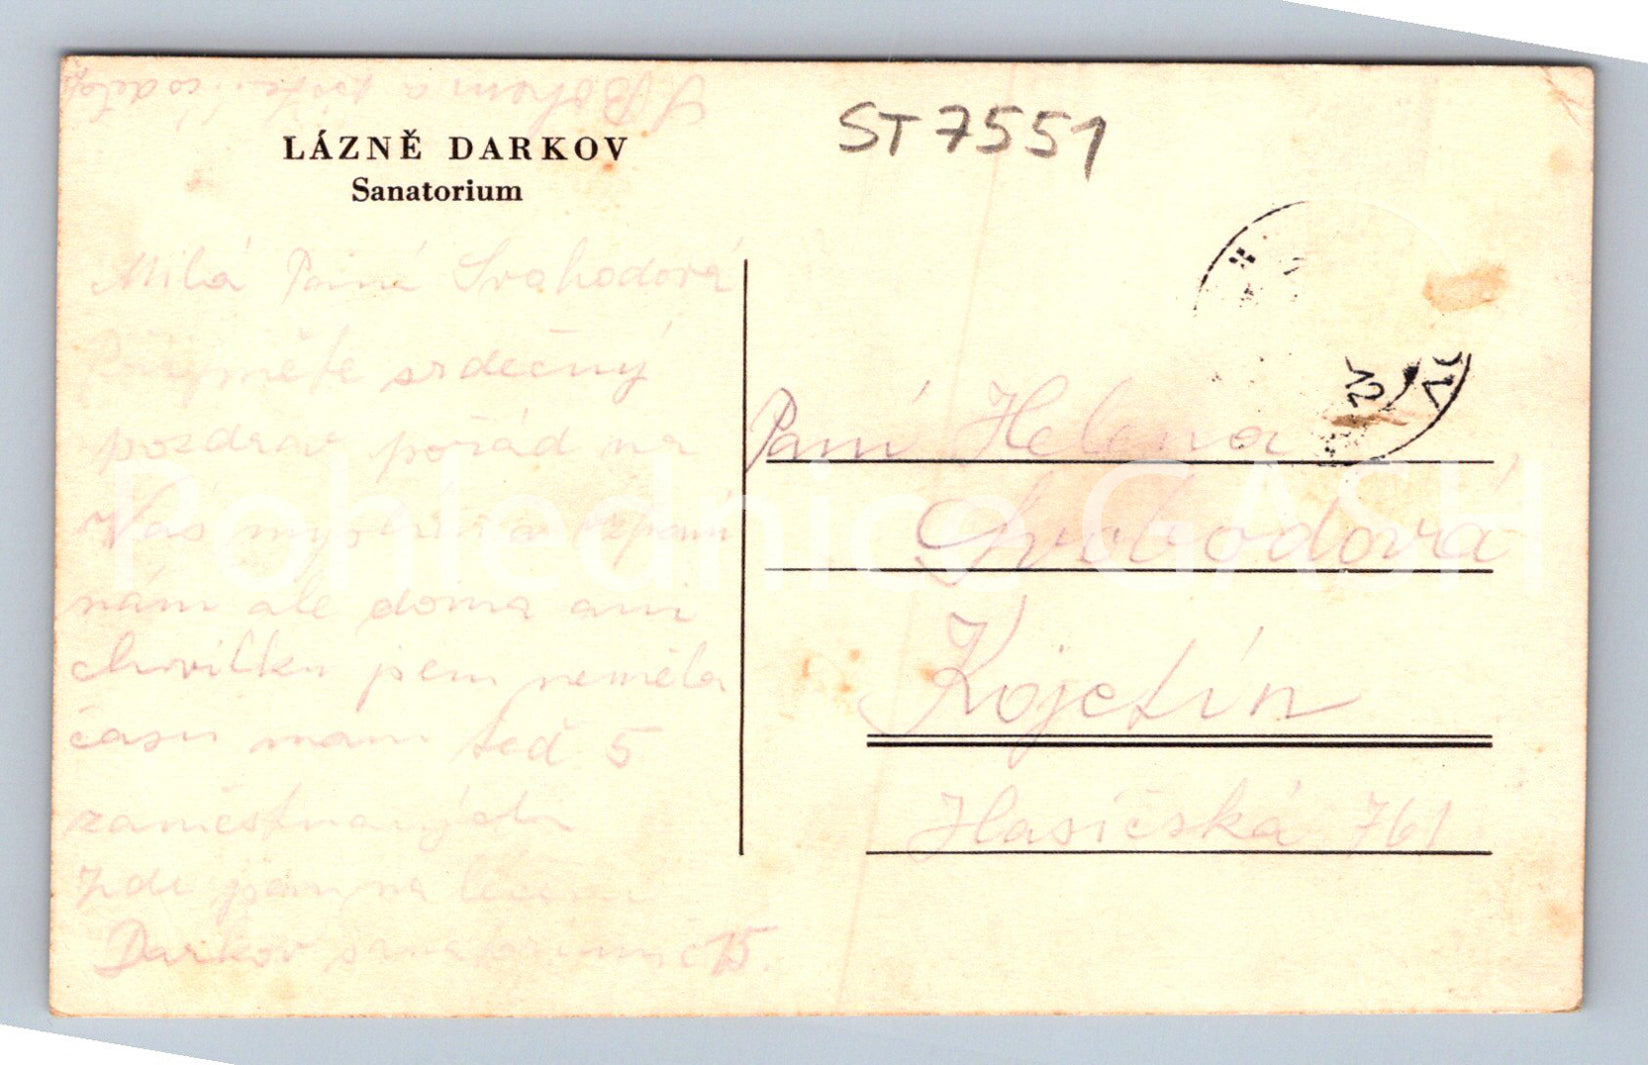 LÁZNĚ DARKOV
Sanatorium
ST 7551
Milá Paní Svobodová
Přijměte srdečný
pozdrav pořád na
Vás myslím a vzpomí
nám ale doma ani
chvilku jsem neměla
času mám teď 5
zaměstnaných
Zde jsem na léčení
Darkov sanatorium č 15.
Paní Helena
Svobodová
Kojetín
Hasičská 761
Pohlednice GASH